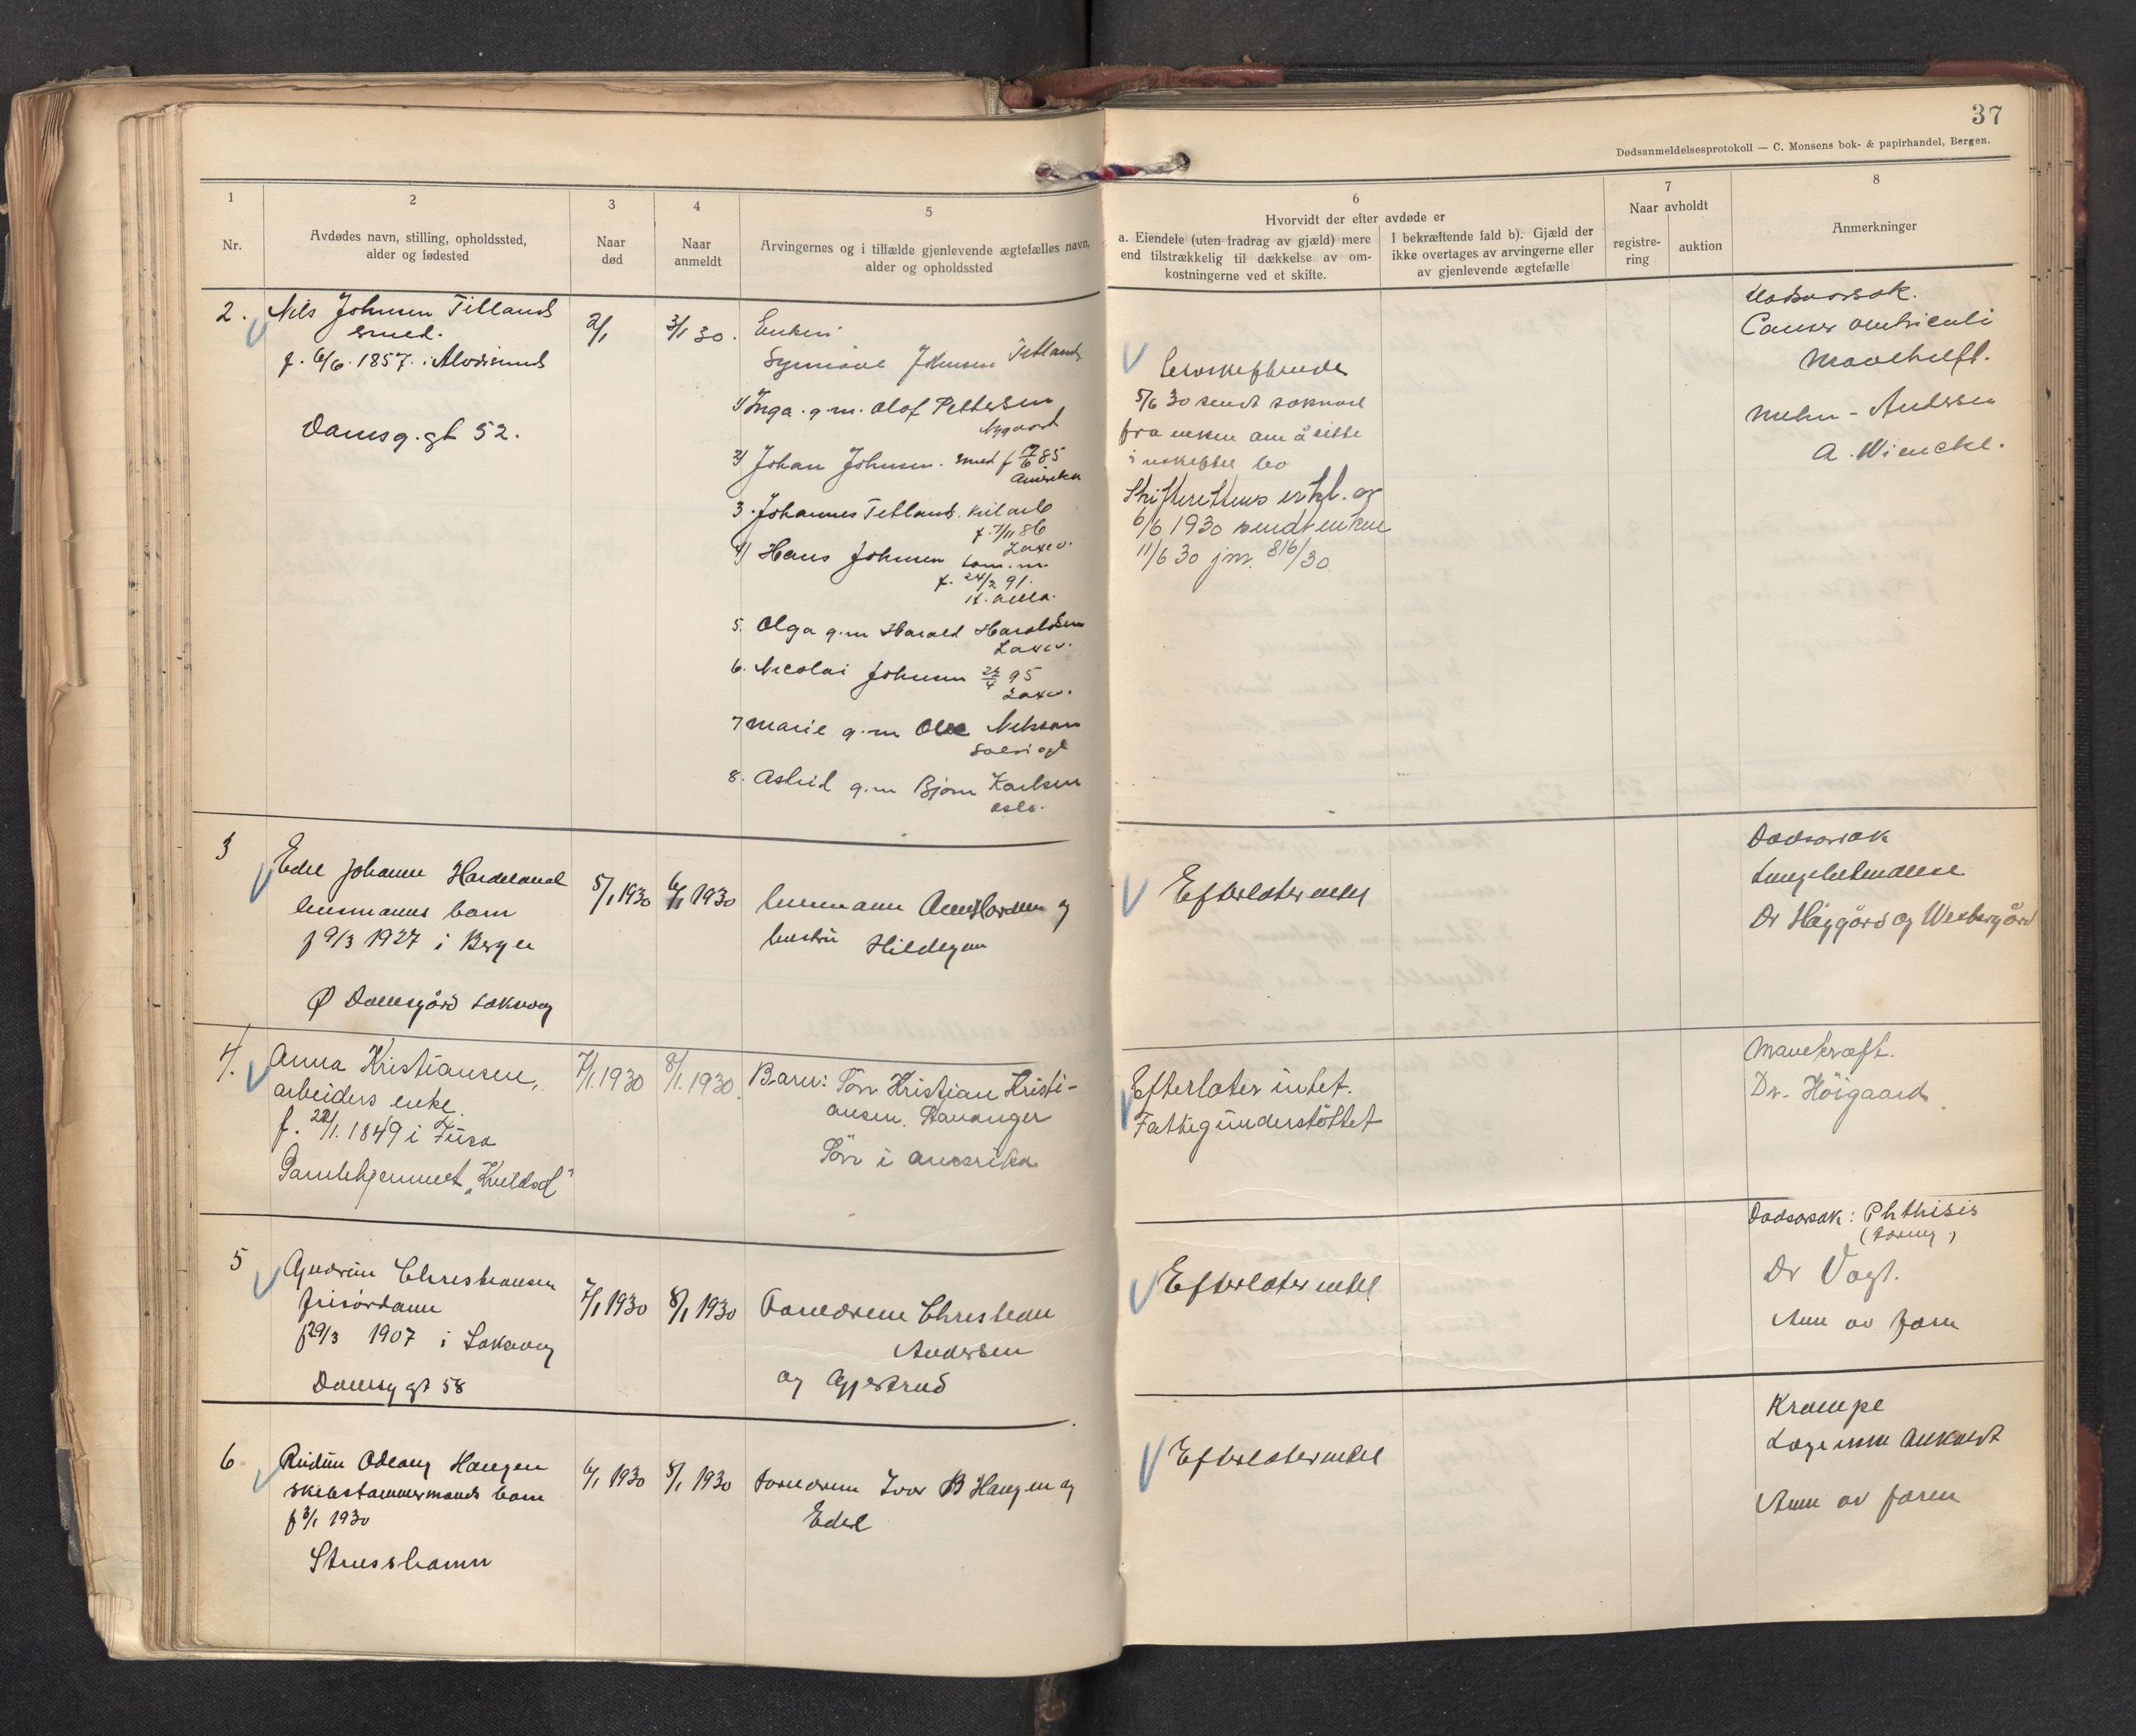 37
Dødsanmeldelsesprotokoll — C. Monsens bok- & papirhandel, Bergen.
1
Nr.
2
Avdødes navn, stilling, opholdssted,
alder og fødested
3
Naar
død
4
Naar
anmeldt
5
Arvingernes og i tilfælde gjenlevende ægtefælles navn,
alder og opholdssted
6
Hvorvidt der efter avdøde er
a. Eiendele (uten fradrag av gjæld) mere
end tilstrækkelig til dækkelse av om-
kostningerne ved et skifte.
I bekræftende fald b). Gjæld der
ikke overtages av arvingerne eller
av gjenlevende ægtefælle
7
Naar avholdt
registre-
ring
auktion
8
Anmerkninger
2.
Nils Johnsen Titland
smed.
f. 6/6 1857 i
Damsg. gt 52.
2/1
3/1 30.
Enken:
Johnsen Titland
1) Inga g.m. Olaf Pettersen
Nygaard
2) Johan Johnsen. smed f 17/6 85
Amerika
3. Johannes Titland
f. 7/11 86
Laxev.
4) Hans Johnsen
f. 24/2 91.
5. Olga g.m Harald Haraldsen
Laxev.
6. Nicolai Johnsen 95
Laxev.
7 Marie g.m Nilssen
8. Astrid g.m Bjørn Karlsen
Oslo.
5/6 30 sendt søknad
fra enken om å sitte
i uskiftet bo
Skifterettens erkl. av
6/6 1930 sendt enken
11/6 30 jnr. 816/30
Dødsårsak.
Cancer ventriculi
Mavekreft.
A. Wiencke.
3
Edel Johanne Hardeland
barn
f 9/3 1927 i Bergen
Ø Damsgård Laksevåg
5/1 1930
6/1 1930
og
hustru Hildegun
Efterlater intet
Dødsårsak
Lungebetendelse
Dr Høygård og Westergård
4.
Anna Kristiansen,
arbeiders enke.
f. 1849 i Fusa
Gamlehjemmet „Kveldsol"
7/1. 1930
8/1. 1930.
Barn: Sön Kristian Kristi-
ansen. Stavanger
Sön i Amerika
Efterlater intet.
Fattigunderstöttet
Mavekræft.
Dr. Höigaard.
5
Gudrun Christiansen
frisørdame
f 29/3 1907 i Laksevåg
Damsg gt 58
7/1 1930
8/1 1930
Foreldrene Christian
Andersen
og Gjertrud
Efterlater intet
Dødsårsak: Phthisis
Dr Vogt.
Anm av faren
6
Rudun Odlaug Haugen
skibstømmermands barn
f 3/1 1930
Strusshamn
6/1 1930
8/1 1930
Foreldrene Ivar B Haugen og
Edel
Efterlater intet
Krampe
Læge ikke tilkaldt
Anm av faren